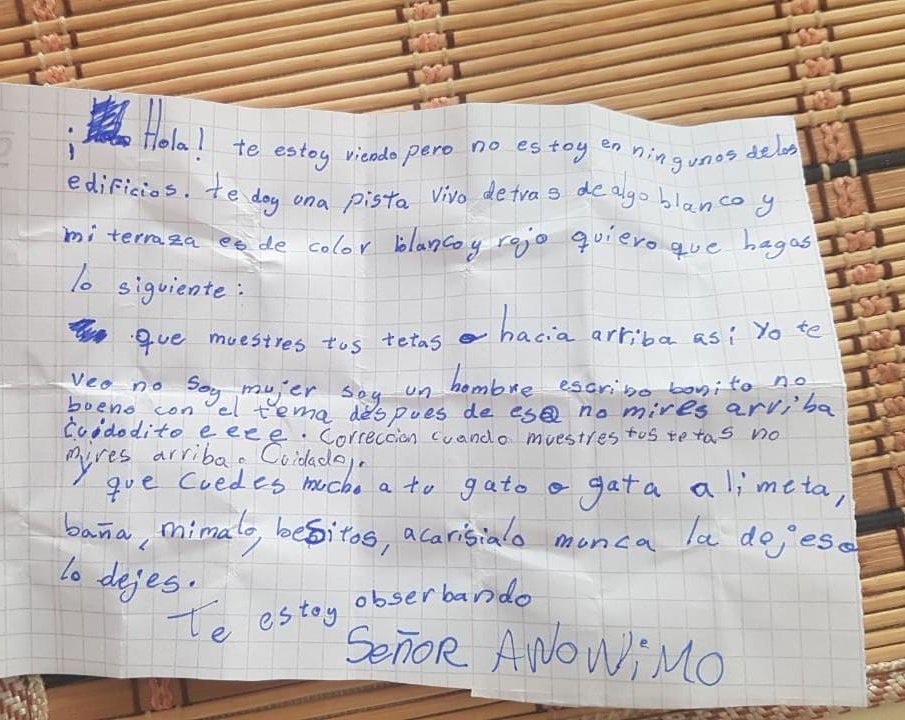 ¡ Hola! te estoy viendo pero no estoy en ningunos delos
edificios. te doy una pista vivo detras de algo blanco y
mi terraza es de color blanco y rojo quiero que hagas
lo siguiente:
que muestres tus tetas hacia arriba asi yo te
veo no soy mujer soy un hombre escribo bonito no
bueno con el tema despues de eso no mires arriba
Cuidodito e e e e. Correccion cuando muestres tus tetas no
myres arriba. Cuidado).
y que Cuedes mucho a tu gato o gata alimeta,
baña, mimalo, besitos, acarisialo munca la dejes o
lo dejes.
Te estoy obserbando
SeñOR ANONiMO